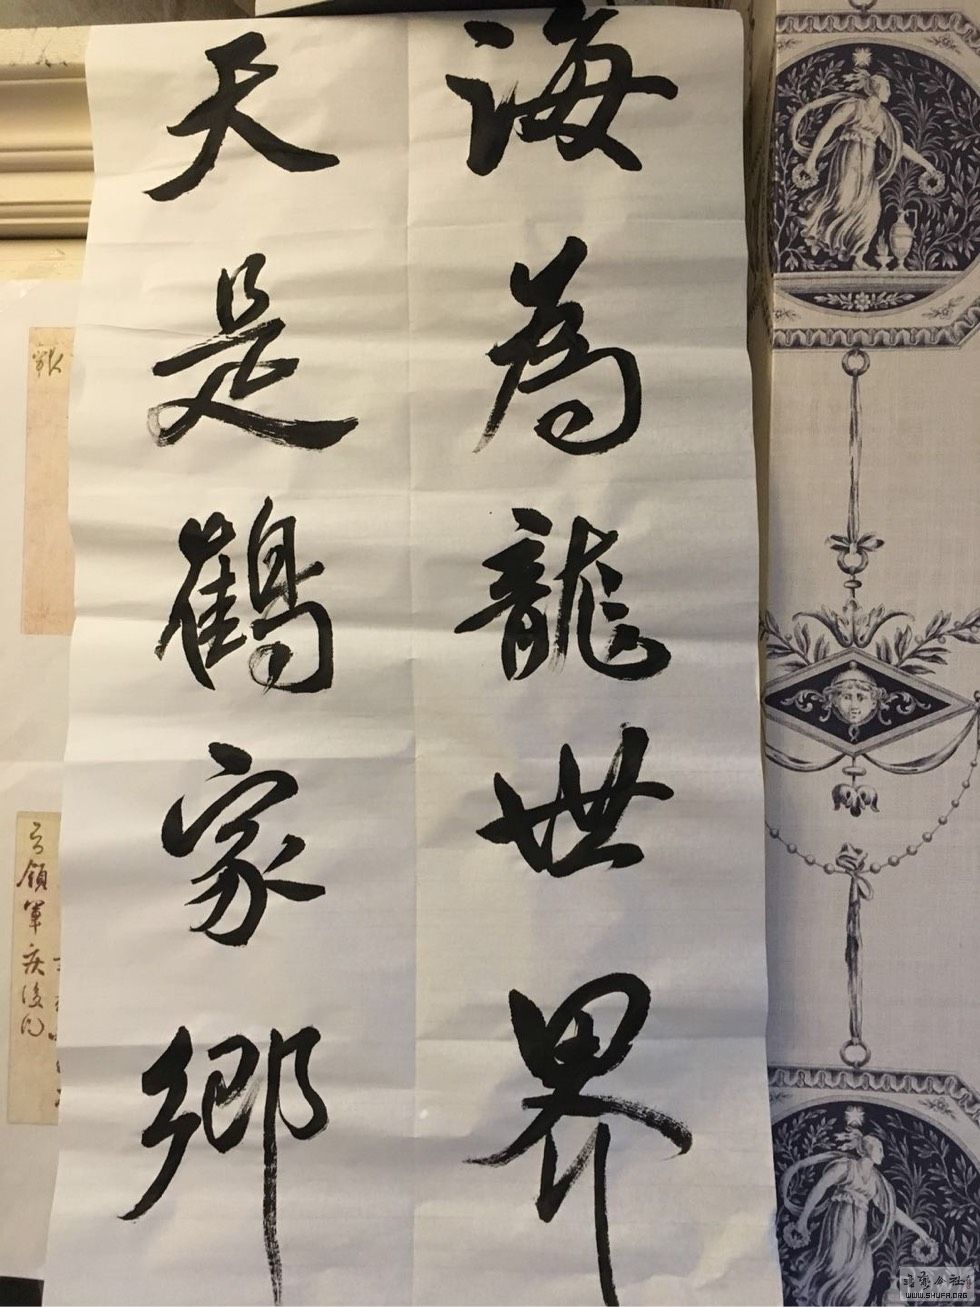 海為龍世界
天是鶴家鄉
領軍疾後問
書艺公社
WWW.SHUFA.ORG